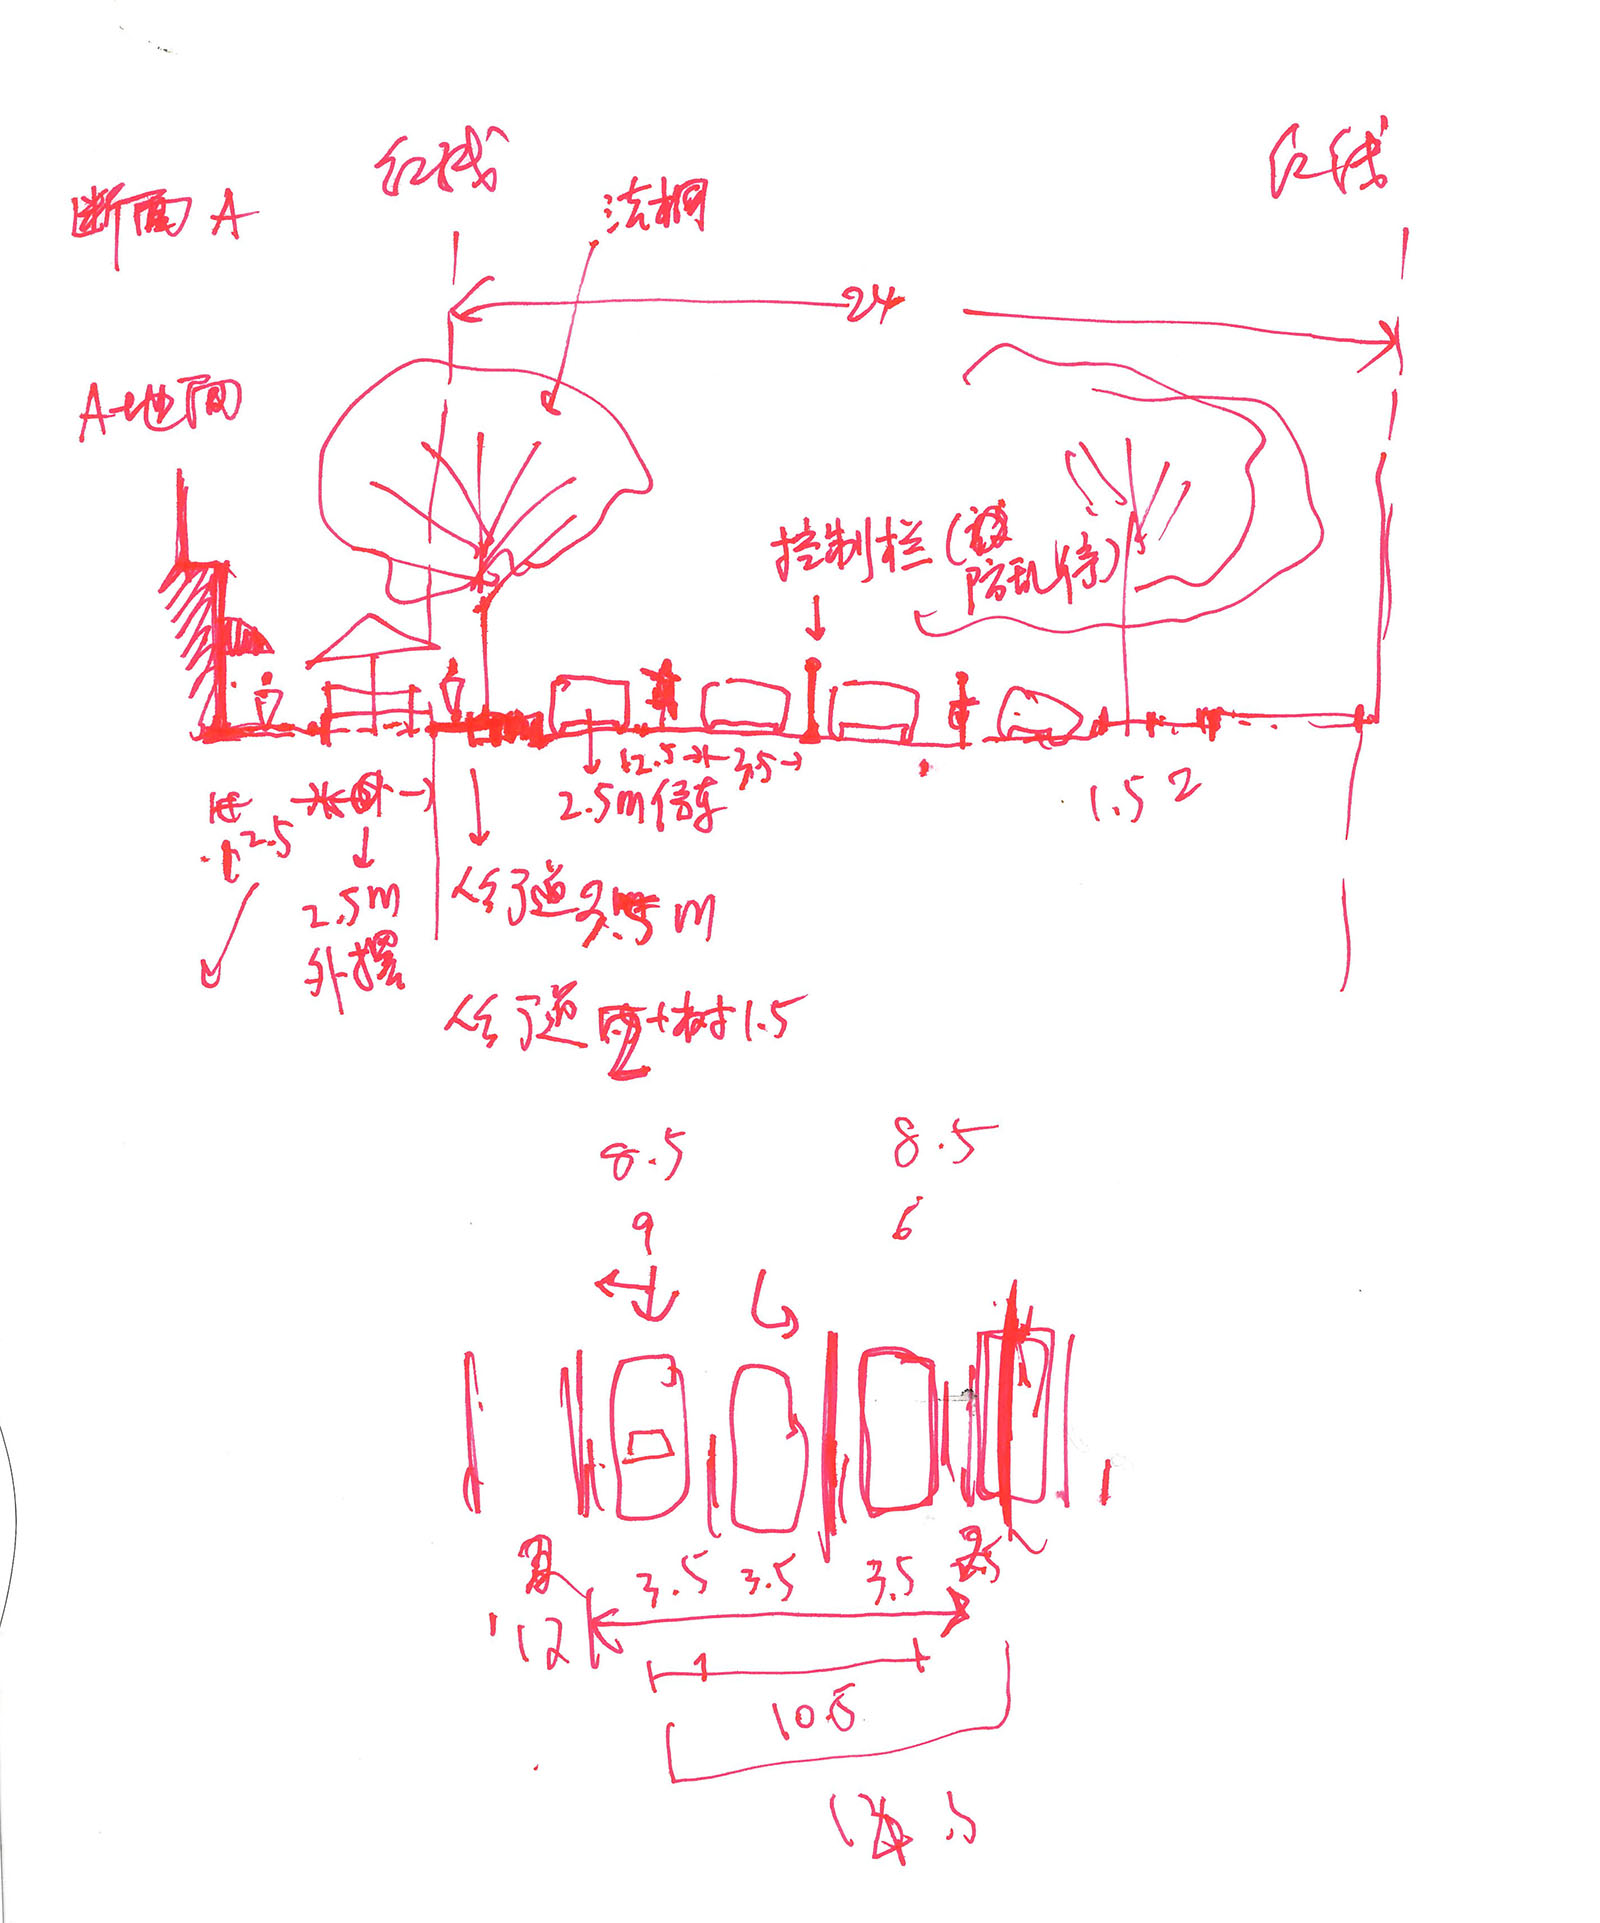 断面 A
红线
法桐
红线
24
A-地面
控制栏(被
防乱停)
2.5
3.5
2.5
2.5m停车
1.5 2
2.5m
外摆
人行道 m
人行道 2+树1.5
8.5
8.5
9
6
3.5 3.5 3.5 2.5
12
10.5